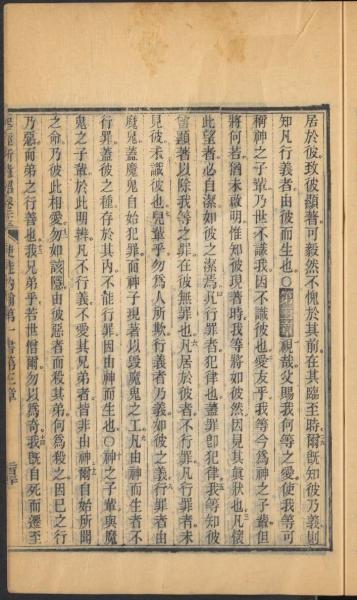 居於彼致彼顯著可毅然不愧於其前在其臨至時爾旣知彼乃義則
知凡行義者由彼而生也○第三章視哉父賜我何等之愛使我等可
稱神之子輩乃世不識我因不識彼也愛友乎我等今爲神之子輩但
將何若猶未啟明惟知彼現著時我等將如彼然因見其眞狀也凡懷
此望者必自潔如彼之潔焉凡行罪者犯律也蓋罪卽犯律我等知彼
曾顯著以除我等之罪在彼無罪也凡居於彼者不行罪凡行罪者未
見彼未識彼也兒輩乎勿爲人所欺行義者乃義如彼之義行罪者由
魔鬼蓋魔鬼自始犯罪而神子現著以毀魔鬼之工凡由神而生者不
行罪蓋彼之種存於其內不能行罪因由神而生也○神之子輩與魔
鬼之子輩於此明辨凡不行義不愛其兄弟者皆非由神爾自始所聞
之命乃彼此相愛勿如該隱由彼惡者而殺其弟何爲殺之因己之行
乃惡而弟之行善也我兄弟乎若世憎爾勿以爲奇我旣自死而遷至
使徒約翰第一書第三章